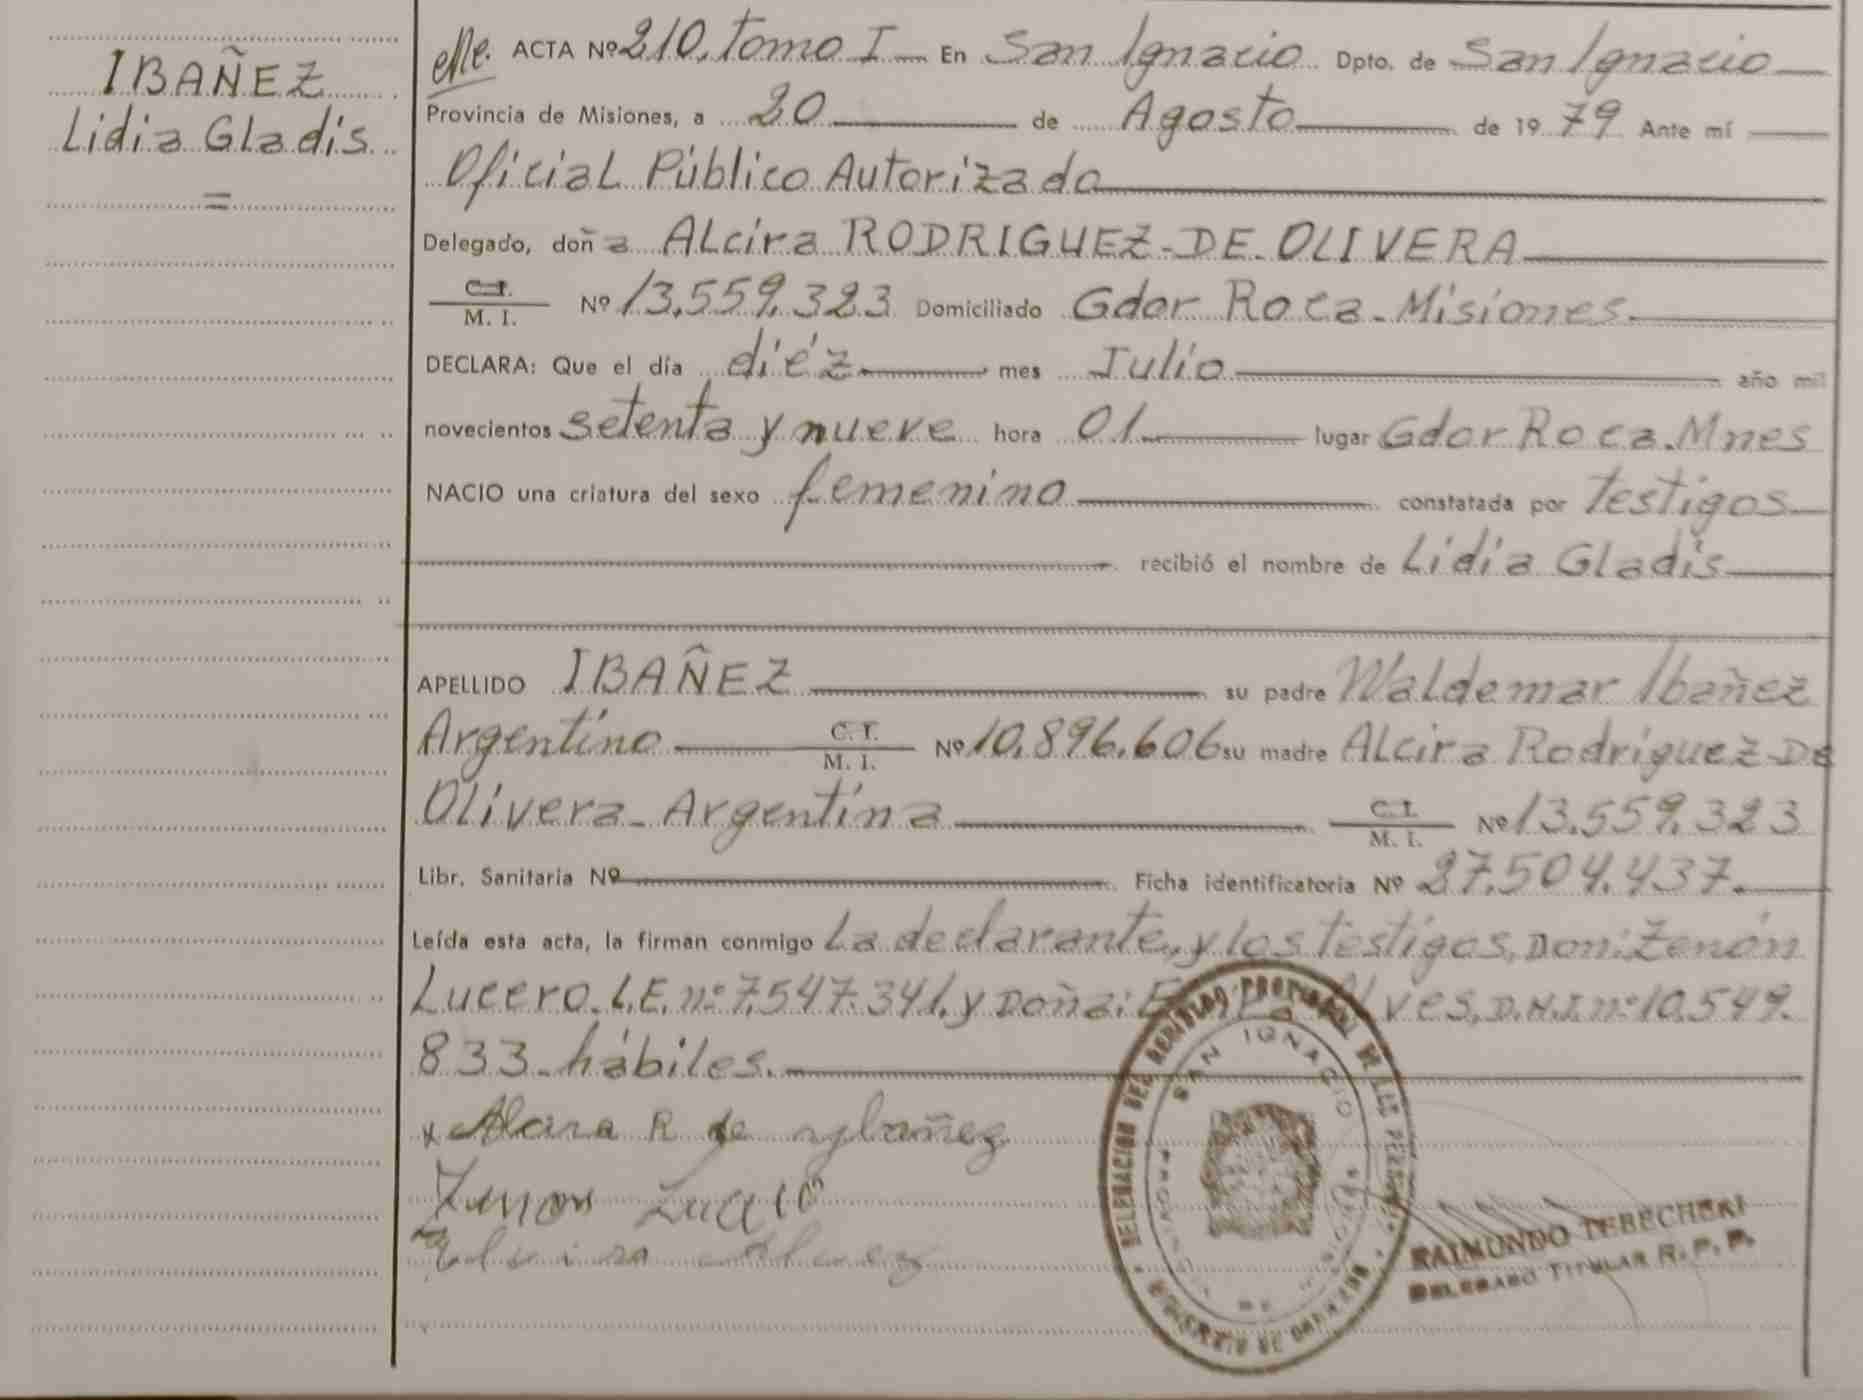 IBAÑEZ
Lidia Gladis
=
ACTA Nº 210. Tomo I En San Ignacio Dpto. de San Ignacio
Provincia de Misiones, a 20 de Agosto de 1979 Ante mí
Oficial Público Autorizado
Delegado, doña Alcira RODRIGUEZ-DE OLIVERA
C. I.
M. I. Nº 13.559.323 Domiciliado Gdor Roca. Misiones.
DECLARA: Que el día diéz mes Julio año mil
novecientos setenta y nueve hora 01 lugar Gdor Roca. Mnes
NACIO una criatura del sexo femenino constatada por testigos
recibió el nombre de Lidia Gladis
APELLIDO IBAÑEZ su padre Waldemar Ibañez
Argentino C. I. M. I. Nº 10.896.606 su madre Alcira Rodriguez-De
Olivera-Argentina C. I. M. I. Nº 13.559.323
Libr. Sanitaria Nº Ficha identificatoria Nº 27.504.437.
Leída esta acta, la firman conmigo La declarante, y los testigos, Don: Zenón
Lucero. L.E. nº 7.547.341. y Doña: Alves, D.N.I. nº 10.549.
833-hábiles.
x Alcira R de Ybañez
Zenon Lucero
Elvira
DELEGACION DEL REGISTRO PROVINCIAL DE LAS PERSONAS
SAN IGNACIO
PROVINCIA DE MISIONES
MINISTERIO DE GOBIERNO
RAIMUNDO TEBECHERI
DELEGADO TITULAR R. P. P.